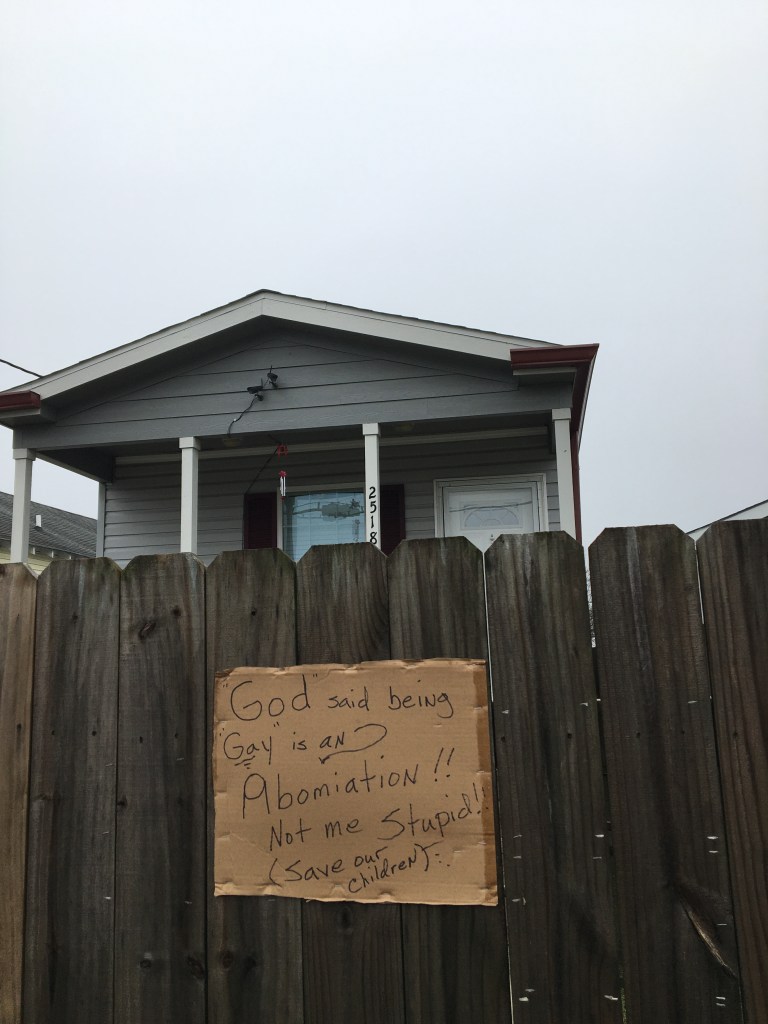 2518
"God" said being
"Gay" is an
Abomiation!!
Not me Stupid!!
(Save our
children)